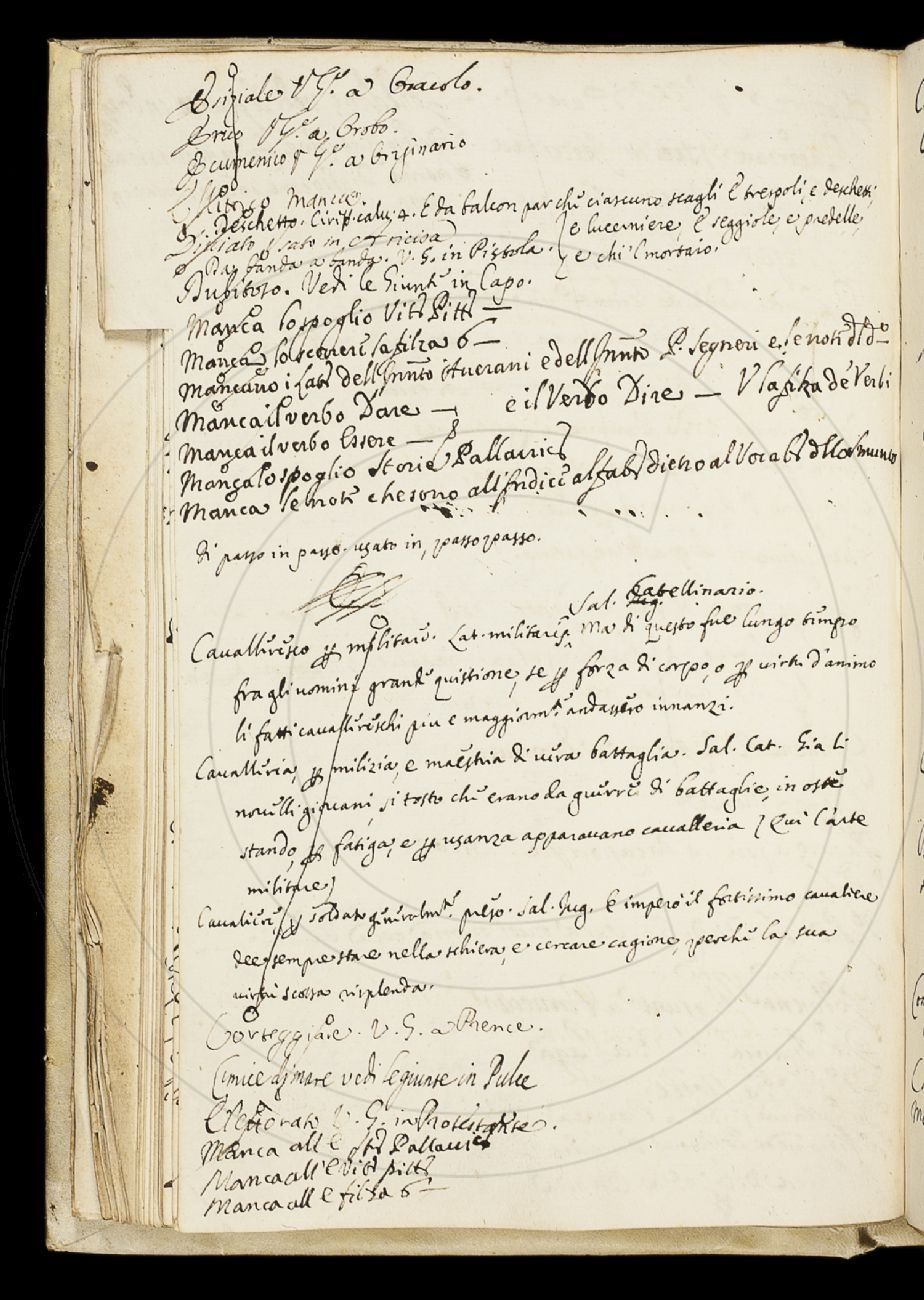 Esiziale V. G. a Oracolo.
Erico V. G. a Orobo.
Ecumenico V. G. a Originario
Manica.
Deschetto. Ciriff. calv. 4. E da balcon par che ciascuno scagli E trespoli, e deschetti,
usato in Arricisa } e lucerniere, E seggiole, e predelle,
Da banda a banda. V. G. in Pistola. } e chi 'l mortaio.
Dubitoso. Vedi le Giunte in Capo.
Manca lo spoglio Vite Pitt —
Manca lo scorrere la filza 6 —
Mancano i Lati dell' Averani e dell' P. Segneri e le note di do —
Manca il verbo Dare — e il Verbo Dire — V la filza de Verbi
Manca il verbo Essere —
Manca lo spoglio Storie Pallavic
Manca le note che sono all' Indice alfab dietro al Vocab dello Smunto
di passo in passo. usato in, passo passo.
Sal. Catellinario.
Cavalleresco per militare. Lat. militaris. Ma di questo fue lungo tempo
fra gli uomini grande quistione, se per forza di corpo, o per virtù d'animo
li fatti cavallereschi più e maggiormte andassero innanzi.
Cavalleria, per milizia, e maestria di vera battaglia. Sal. Cat. Gia li
novelli giovani, si tosto che erano da guerre di battaglie, in oste
stando, per fatiga, e per usanza apparavano cavalleria } qui l'arte
militare }
Cavaliere, per soldato generalmte. preso. Sal. Jug. E imperò il fortissimo cavaliere
dee sempre stare nella schiera, e cercare cagione, perchè la sua
virtù scossa risplenda.
Corteggiare. V. G. a Prence.
Cimice di mare vedi le giunte in Pulce
Elettorato V. G. in Protestante.
Manca all E Pallavic
Manca all' E Vite pitt
Manca all E filza 6 —